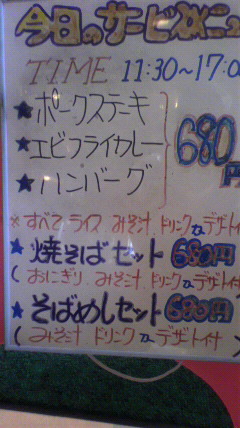 今日のサービスメニュ
TIME 11:30~17:0
★ポークステーキ
★エビフライカレー
★ハンバーグ
680円
※すべて ライス みそ汁 ドリンク デザート付
★焼そばセット 680円
(おにぎり みそ汁 ドリンク デザート付
★そばめしセット 680円
(みそ汁 ドリンク デザート付)